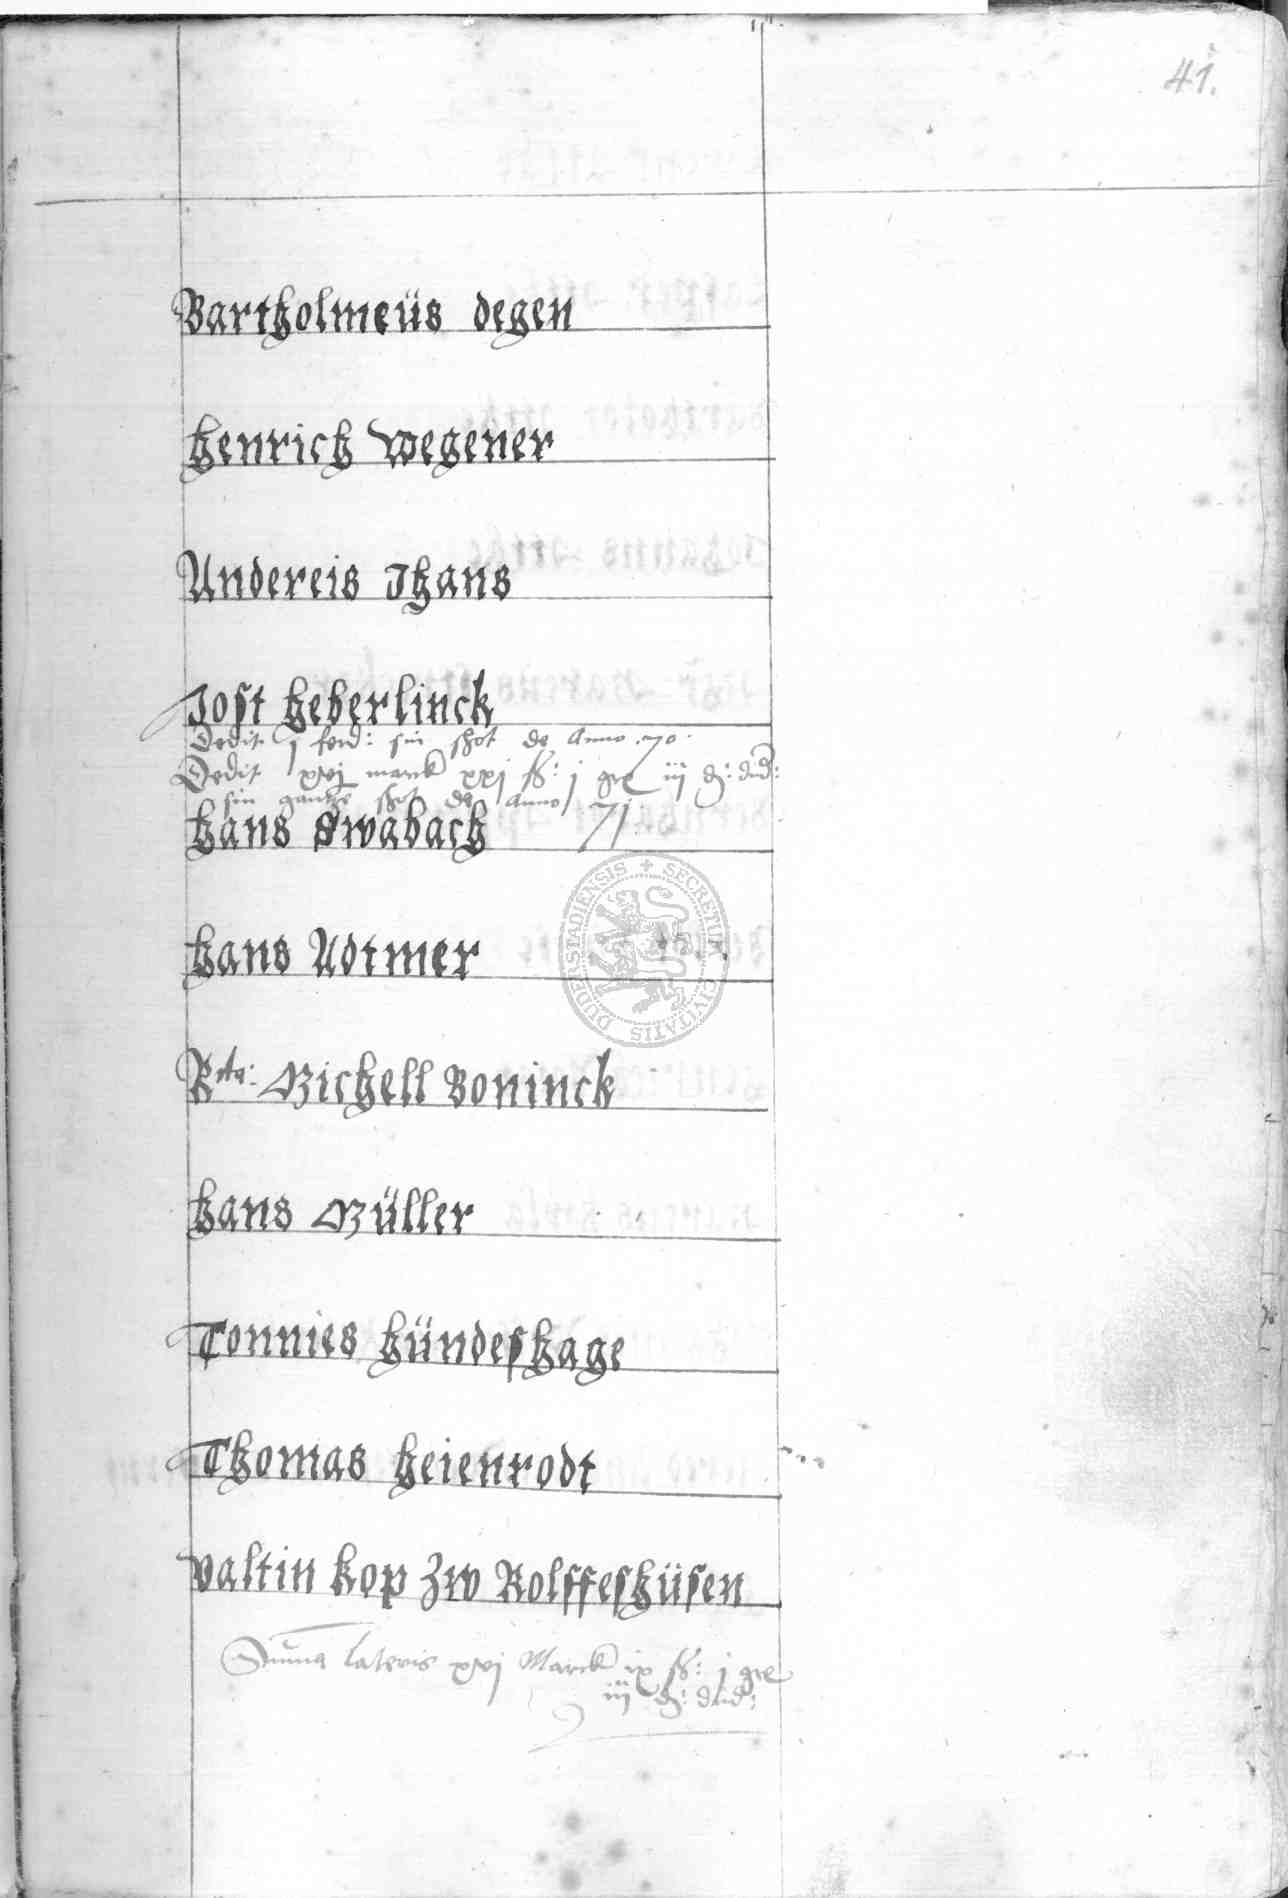 41.
Bartholmeüs degen
Henrich Wegener
Andereis Jhans
Jost Heberlinck
Dedit j ferd: sin schot de Anno .70.
Dedit xvj marck xxj ß: j gre iij d: dud:
sin gantze schot de Anno 71
Hans Swabach
Hans Adtmer
Michell Boninck
Hans Müller
Tonnies Hündeshage
Thomas Heienrodt
Valtin Kop zw Rolffeshüsen
Summa lateris xvj Marck ix ß: j gre
iij d: dud:
SECRETUM CIVITATIS DUDERSTADIENSIS